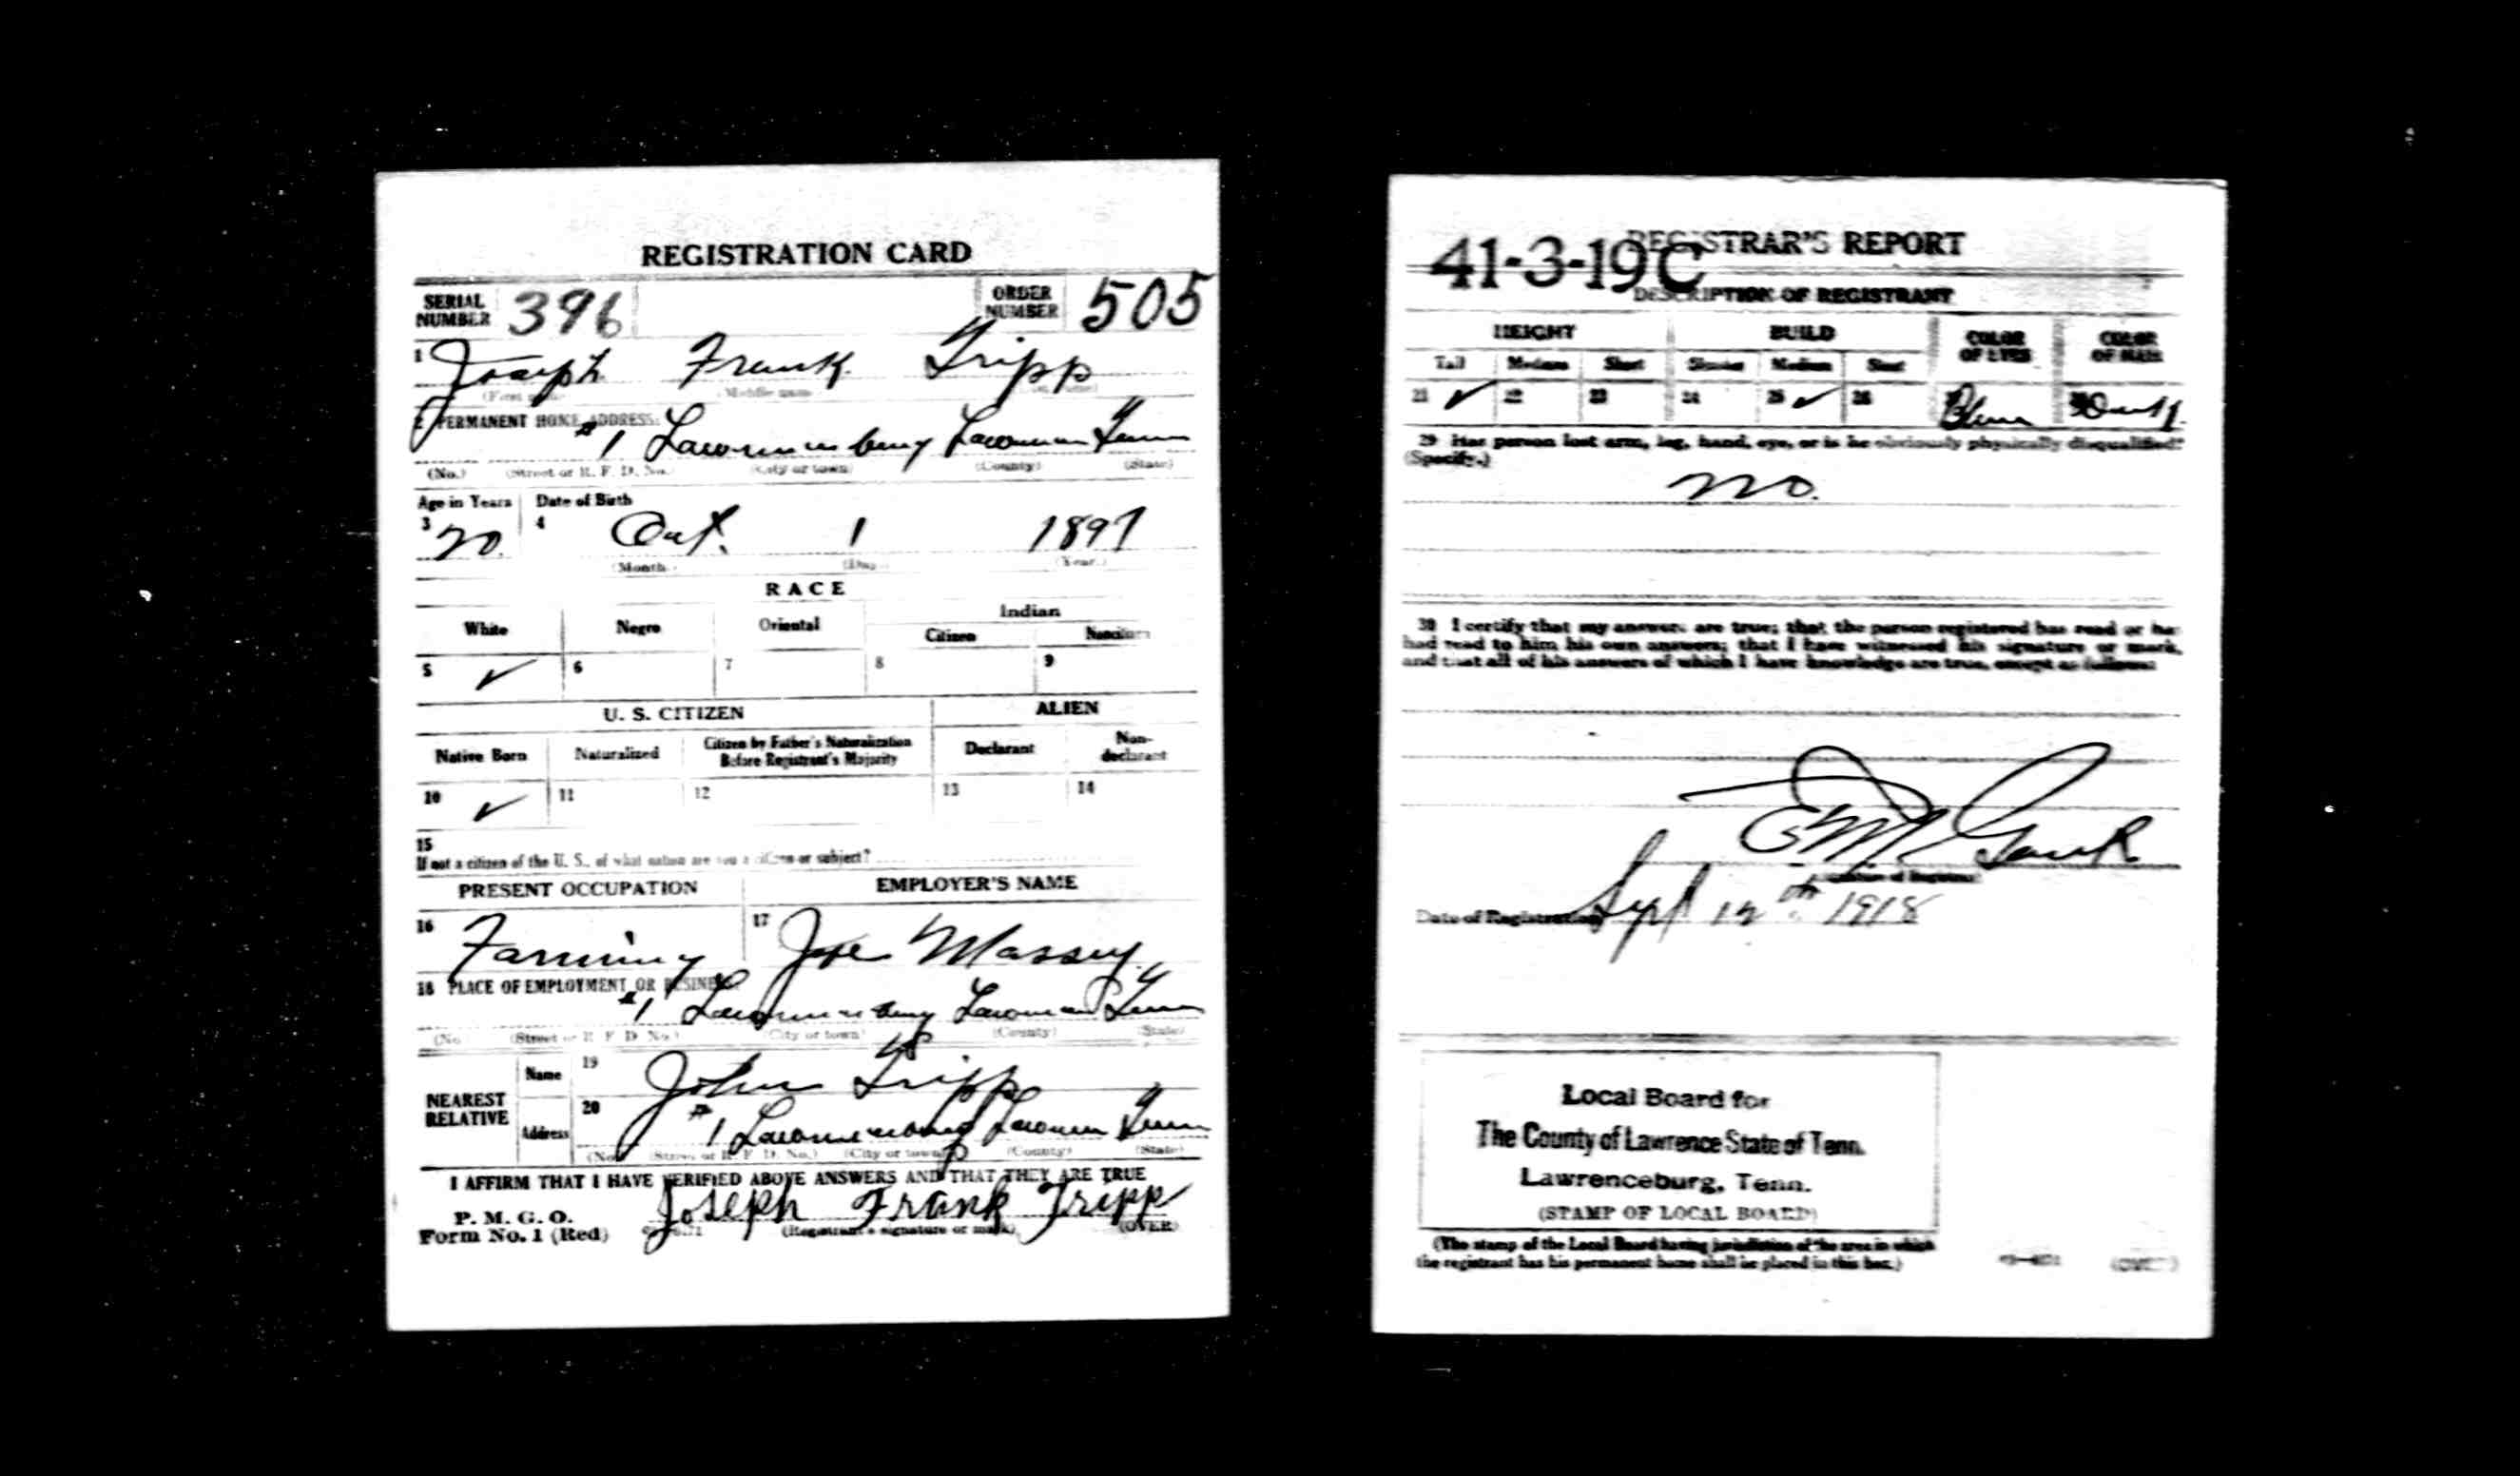 REGISTRATION CARD
SERIAL NUMBER 396 ORDER NUMBER 505
1 Joseph Frank Tripp
(First name) (Middle name) (Last name)
2 PERMANENT HOME ADDRESS:
#1 Lawrenceburg Lawrence Tenn
(No.) (Street or R. F. D. No.) (City or town) (County) (State)
Age in Years Date of Birth
3 20. 4 Oct. 1 1897
(Month.) (Day.) (Year.)
RACE
White Negro Oriental Indian
Citizen Noncitizen
5 ✓ 6 7 8 9
U. S. CITIZEN ALIEN
Native Born Naturalized Citizen by Father's Naturalization Before Registrant's Majority Declarant Non-declarant
10 ✓ 11 12 13 14
15
If not a citizen of the U. S., of what nation are you a citizen or subject?
PRESENT OCCUPATION EMPLOYER'S NAME
16 Farming 17 Joe Massey
18 PLACE OF EMPLOYMENT OR BUSINESS:
#1 Lawrenceburg Lawrence Tenn
(No.) (Street or R. F. D. No.) (City or town) (County) (State)
NEAREST RELATIVE Name 19 John Tripp
Address 20 #1 Lawrenceburg Lawrence Tenn
(No.) (Street or R. F. D. No.) (City or town) (County) (State)
I AFFIRM THAT I HAVE VERIFIED ABOVE ANSWERS AND THAT THEY ARE TRUE
P. M. G. O.
Form No. 1 (Red) Joseph Frank Tripp
(Registrant's signature or mark) (OVER)
REGISTRAR'S REPORT
41-3-19 C
DESCRIPTION OF REGISTRANT
HEIGHT BUILD COLOR OF EYES COLOR OF HAIR
Tall Medium Short Slender Medium Stout
21 ✓ 22 23 24 25 ✓ 26 Blue
29 Has person lost arm, leg, hand, eye, or is he obviously physically disqualified?
(Specify.)
no.
30 I certify that my answers are true; that the person registered has read or has
had read to him his own answers; that I have witnessed his signature or mark,
and that all of his answers of which I have knowledge are true, except as follows:
Date of Registration Sept 12th 1918
Local Board for
The County of Lawrence State of Tenn.
Lawrenceburg, Tenn.
(STAMP OF LOCAL BOARD)
(The stamp of the Local Board having jurisdiction of the area in which
the registrant has his permanent home shall be placed in this box.)
(OVER)